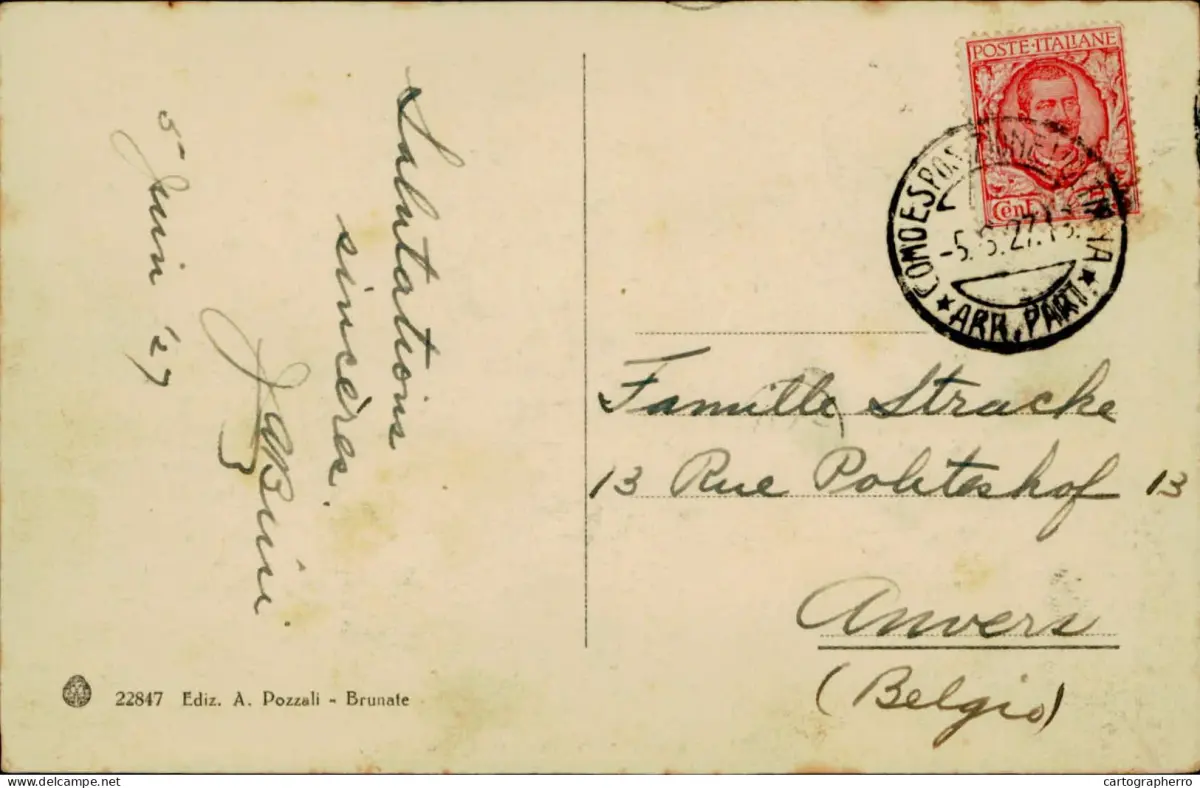 Salutations
sincères.
5 Juin '27
22847 Ediz. A. Pozzali - Brunate
POSTE·ITALIANE
Cent
COMO ESPOSIZIONE
-5. 27.
★ ARR. PART. ★
Famille Stracke
13 Rue Politeshof 13
Anvers
(Belgio)
www.delcampe.net
cartographerro